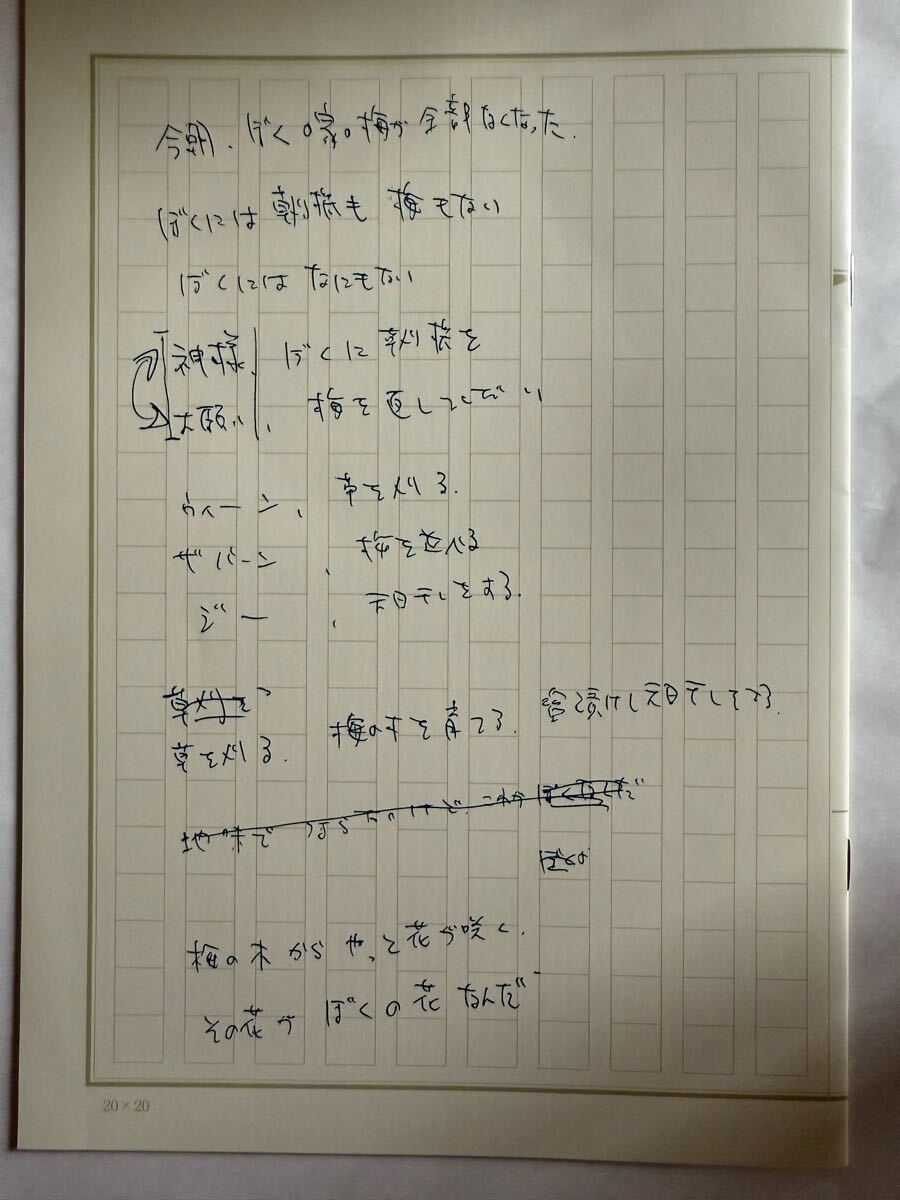 今朝、ぼくの家の梅が全部なくなった.
ぼくには草刈機も 梅もない
ぼくには なにもない
神様、ぼくに草刈機を
お願い、梅を返してください
ウィーン、草を刈る.
ザバーン、梅を並べる
ジー、天日干しをする.
草刈りを
草を刈る. 梅の木を育てる. 塩漬けし天日干してる.
地味で つらいけど. これが ぼくなんだ
ぼくの
梅の木から やっと花が咲く.
その花が ぼくの花なんだ
20×20